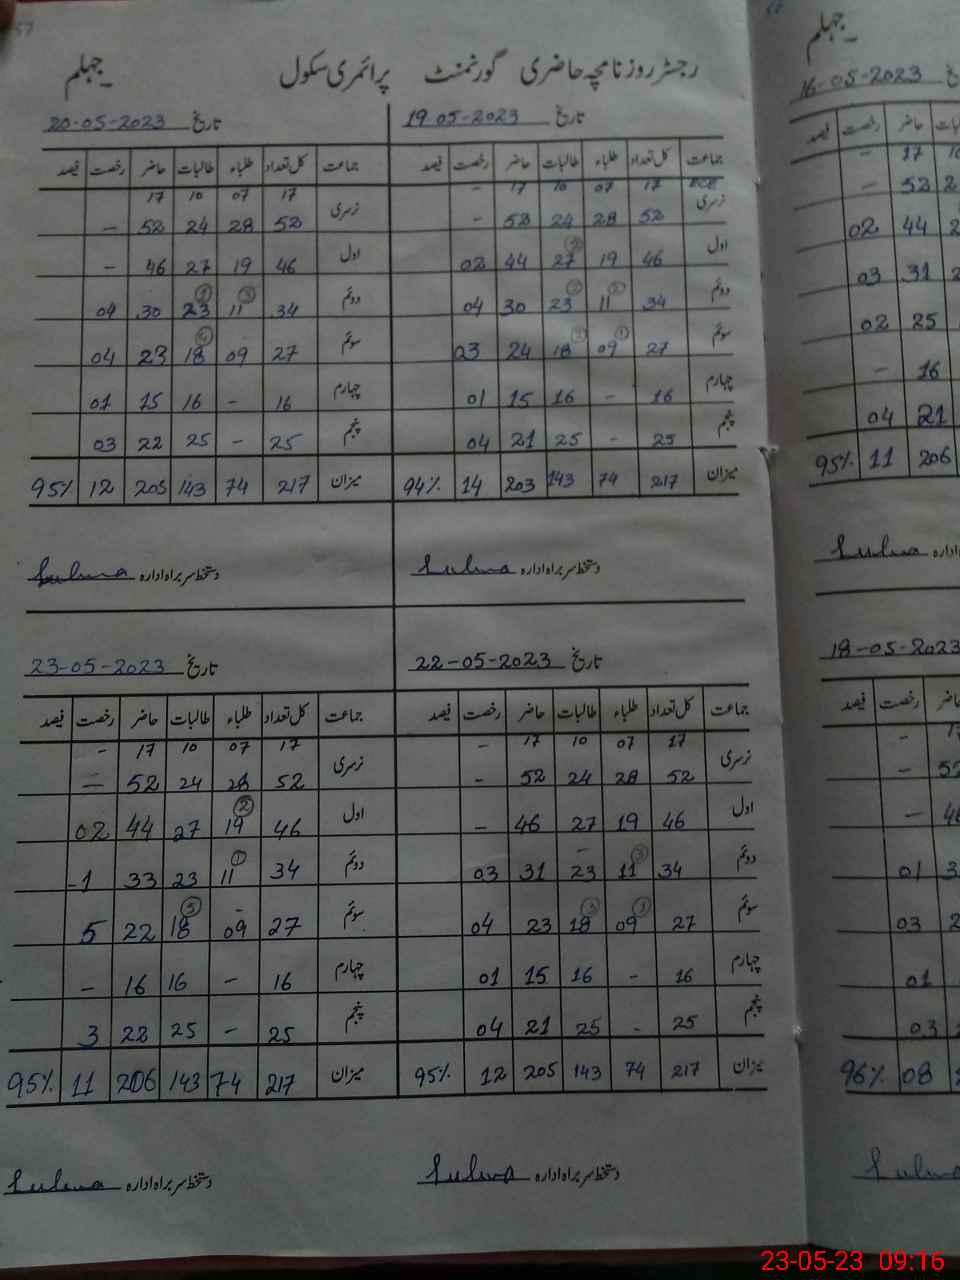 57
رجسٹر روزنامچہ حاضری گورنمنٹ پرائمری سکول ـ جہلم
تاریخ 19-05-2023
جماعت کل تعداد طلباء طالبات حاضر رخصت فیصد
ECE 17 07 10 17 -
نرسری 52 28 24 52 -
اول 46 19 27 (2) 44 02
دوئم 34 11 (2) 23 (2) 30 04
سوئم 27 09 (1) 18 (2) 24 03
چہارم 16 - 16 15 01
پنجم 25 - 25 21 04
میزان 217 74 143 203 14 94%
دستخط سربراہ ادارہ
تاریخ 20-05-2023
جماعت کل تعداد طلباء طالبات حاضر رخصت فیصد
17 07 10 17
نرسری 52 28 24 52 -
اول 46 19 27 46 -
دوئم 34 11 (3) 23 (1) 30 04
سوئم 27 09 18 (4) 23 04
چہارم 16 - 16 15 01
پنجم 25 - 25 22 03
میزان 217 74 143 205 12 95%
دستخط سربراہ ادارہ
تاریخ 22-05-2023
جماعت کل تعداد طلباء طالبات حاضر رخصت فیصد
17 07 10 17 -
نرسری 52 28 24 52 -
اول 46 19 27 46 -
دوئم 34 11 (3) 23 - 31 03
سوئم 27 09 (1) 18 (3) 23 04
چہارم 16 - 16 15 01
پنجم 25 - 25 21 04
میزان 217 74 143 205 12 95%
دستخط سربراہ ادارہ
تاریخ 23-05-2023
جماعت کل تعداد طلباء طالبات حاضر رخصت فیصد
17 07 10 17 -
نرسری 52 28 24 52 -
اول 46 19 (2) 27 44 02
دوئم 34 11 (1) 23 33 -1
سوئم 27 09 - 18 (5) 22 5
چہارم 16 - 16 16 -
پنجم 25 - 25 22 3
میزان 217 74 143 206 11 95%
دستخط سربراہ ادارہ
ـ جہلم
16-05-2023
حاضر رخصت فیصد
17 -
52 -
44 02
31 03
25 02
16 -
21 04
206 11 95%
18-05-2023
رخصت فیصد
-
-
-
01
03
01
03
08 96%
23-05-23 09:16